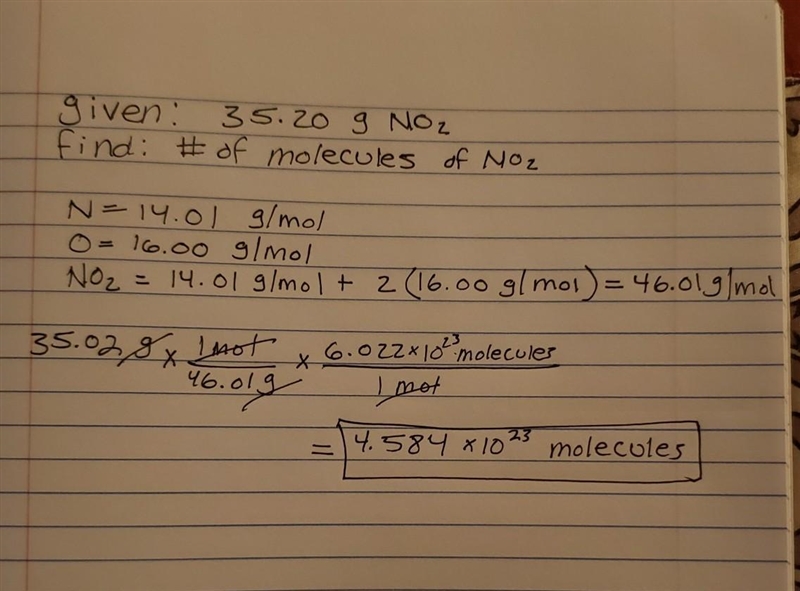 given: 35.20 g NO₂
find: # of molecules of NO₂
N = 14.01 g/mol
O = 16.00 g/mol
NO₂ = 14.01 g/mol + 2 (16.00 g/mol) = 46.01 g/mol
35.02 g × 1 mol / 46.01 g × 6.022 × 10²³ molecules / 1 mol
= 4.584 × 10²³ molecules